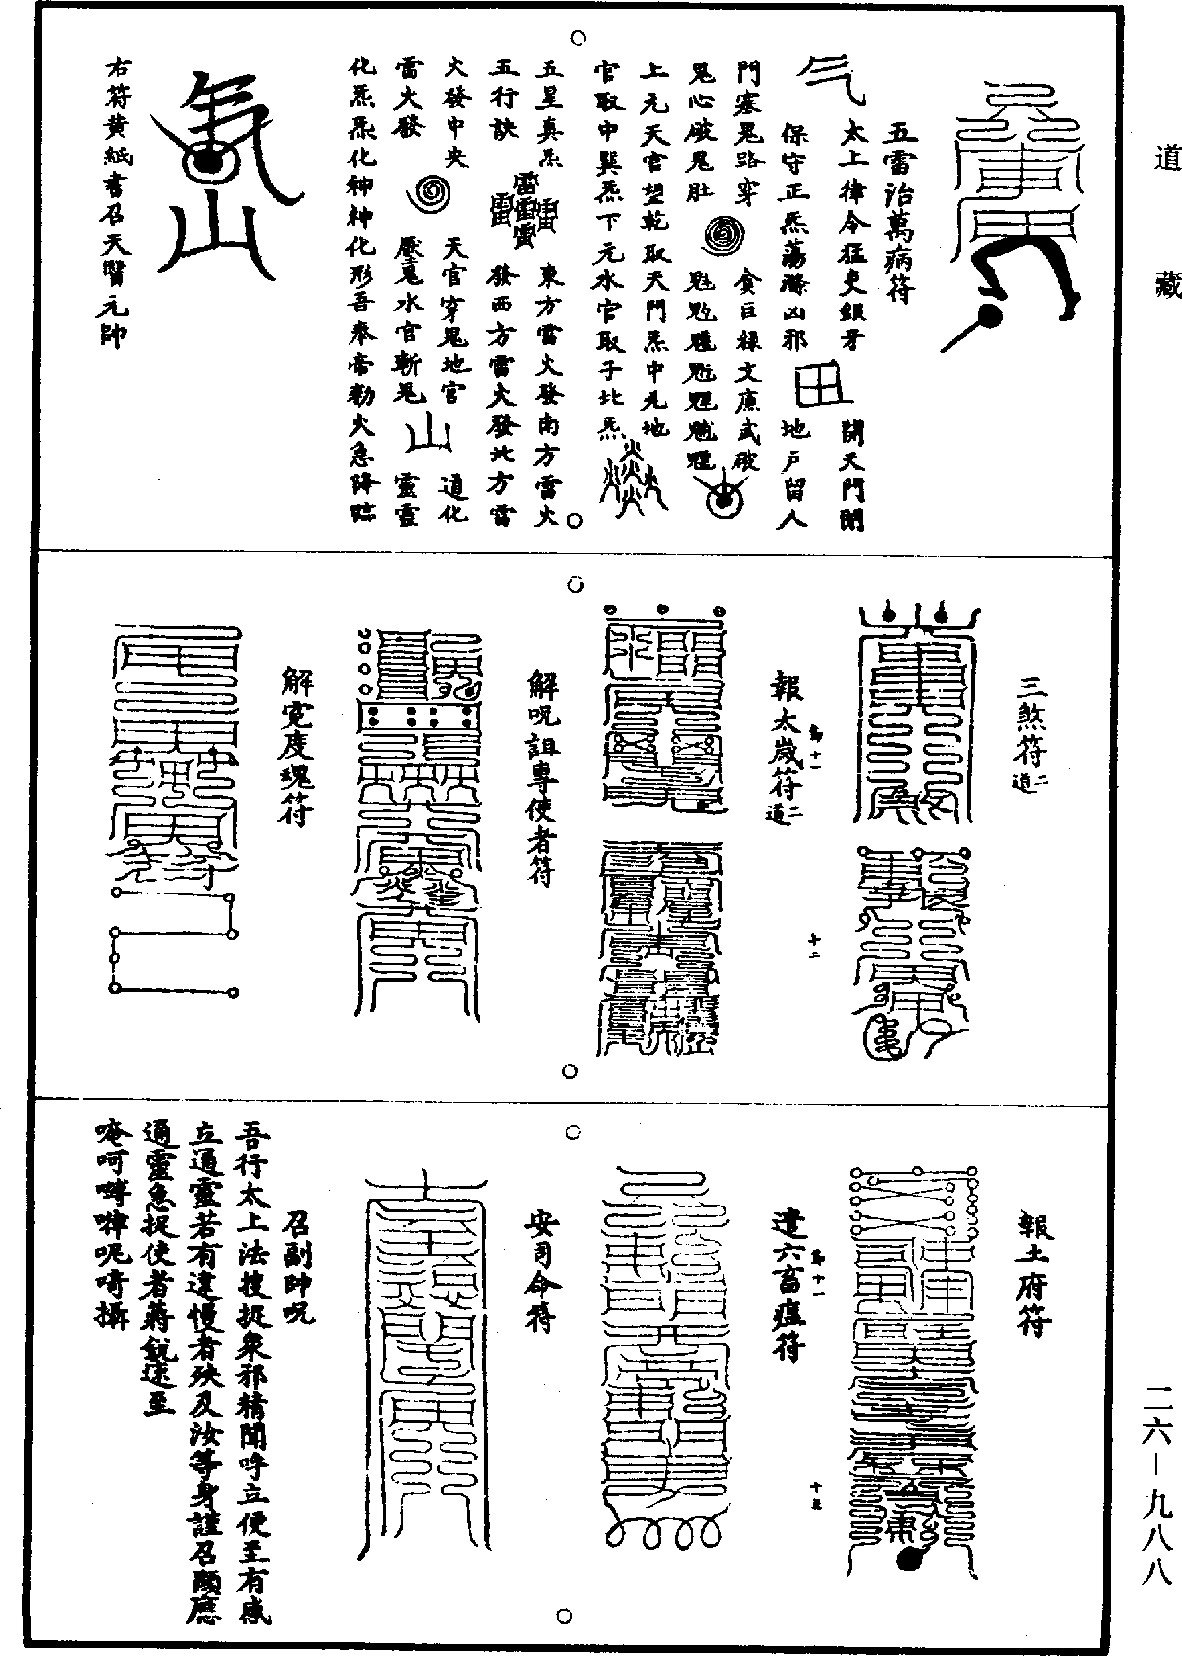 道藏
五雷治萬病符
太上律令猛吏銀牙
開天門閉
保守正炁蕩滌凶邪
地戶留人
門塞鬼路穿
貪巨祿文廉武破
鬼心破鬼肚
魁𩲃魓
上元天官望乾取天門炁中元地
官取中巽炁下元水官取子北炁
五星真炁
雷雷雷雷雷
東方雷火發南方雷火
五行訣
發西方雷火發北方雷
火發中央
天官穿鬼地官
道化
雷火發
壓鬼水官斬鬼
山
靈靈
化炁炁化神神化形吾奉帝勅火急降臨
右符黃紙書召天醫元帥
三煞符二道
報太歲符二道
第十一
十二
解呪詛專使者符
解寃度魂符
報土府符
遣六畜瘟符
第十一
安司命符
召副帥呪
吾行太上法搜捉衆邪精聞呼立便至有感
立通靈若有違慢者殃及汝等身謹召顯應
通靈急捉使者蔣銳速至
唵呵嚩嘩呢㗨攝
二六—九八八